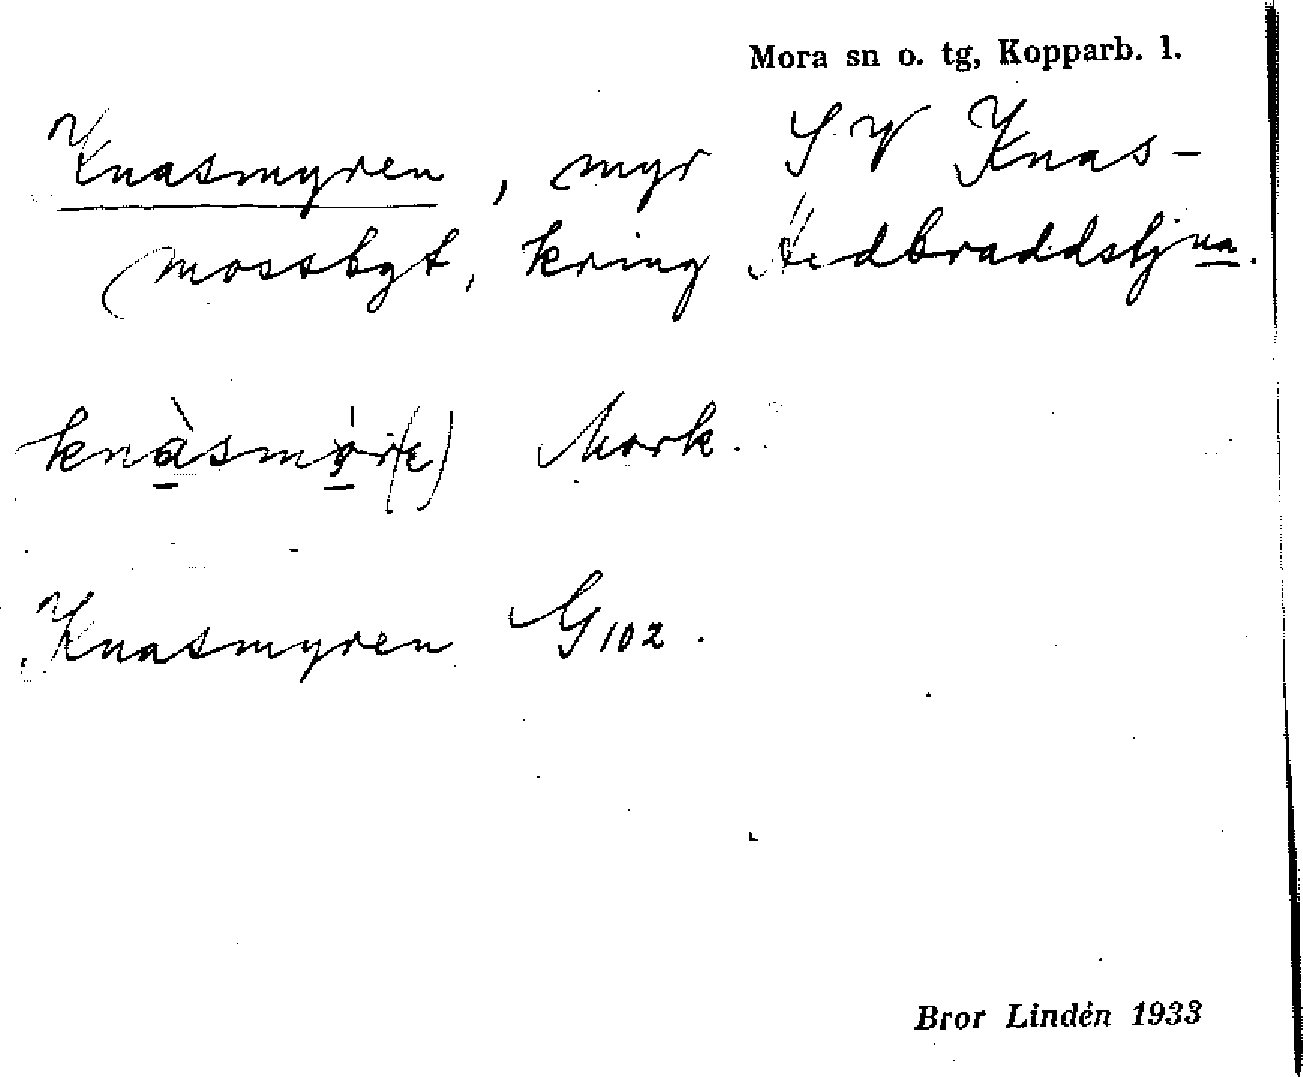 Mora sn o. tg, Kopparb. l.
Knasmyren, myr SV Knas-
mossbgt, kring
knàsmýr(e) Mork.
Knasmyren G102.
Bror Lindén 1933